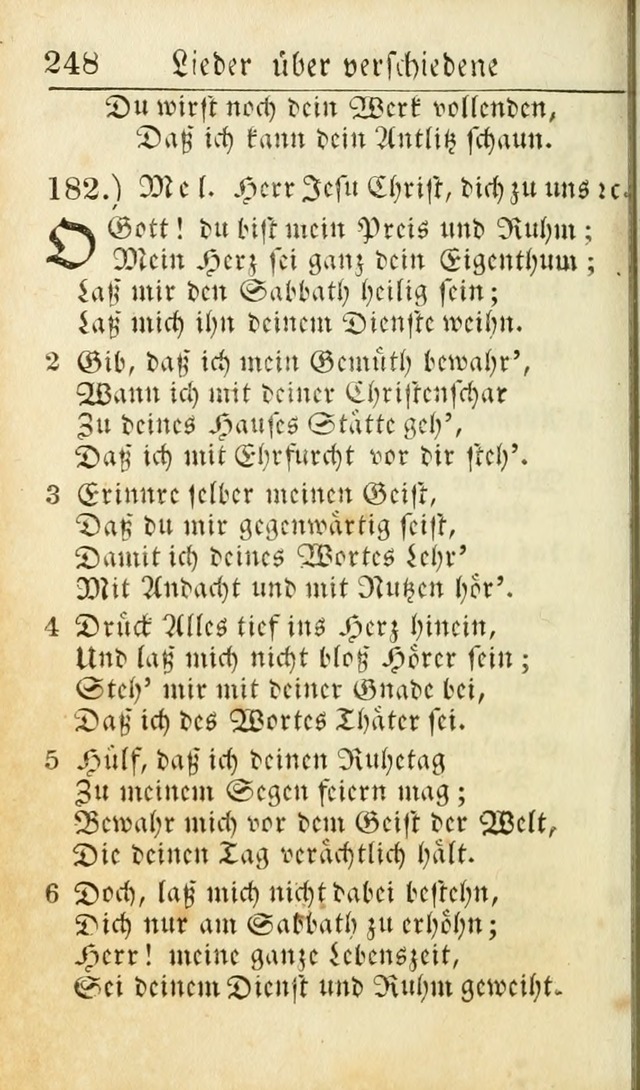 248 Lieder über verschiedene
Du wirst noch dein Werk vollenden,
Daß ich kann dein Antlitz schaun.
182.) Mel. Herr Jesu Christ, dich zu uns ꝛc.
O Gott! du bist mein Preis und Ruhm;
Mein Herz sei ganz dein Eigenthum;
Laß mir den Sabbath heilig sein;
Laß mich ihn deinem Dienste weihn.
2 Gib, daß ich mein Gemüth bewahr',
Wann ich mit deiner Christenschar
Zu deines Hauses Stätte geh',
Daß ich mit Ehrfurcht vor dir steh'.
3 Erinnre selber meinen Geist,
Daß du mir gegenwärtig seist,
Damit ich deines Wortes Lehr'
Mit Andacht und mit Nutzen hör'.
4 Drück Alles tief ins Herz hinein,
Und laß mich nicht bloß Hörer sein;
Steh' mir mit deiner Gnade bei,
Daß ich des Wortes Thäter sei.
5 Hülf, daß ich deinen Ruhetag
Zu meinem Segen feiern mag;
Bewahr mich vor dem Geist der Welt,
Die deinen Tag verächtlich hält.
6 Doch, laß mich nicht dabei bestehn,
Dich nur am Sabbath zu erhöhn;
Herr! meine ganze Lebenszeit,
Sei deinem Dienst und Ruhm geweiht.